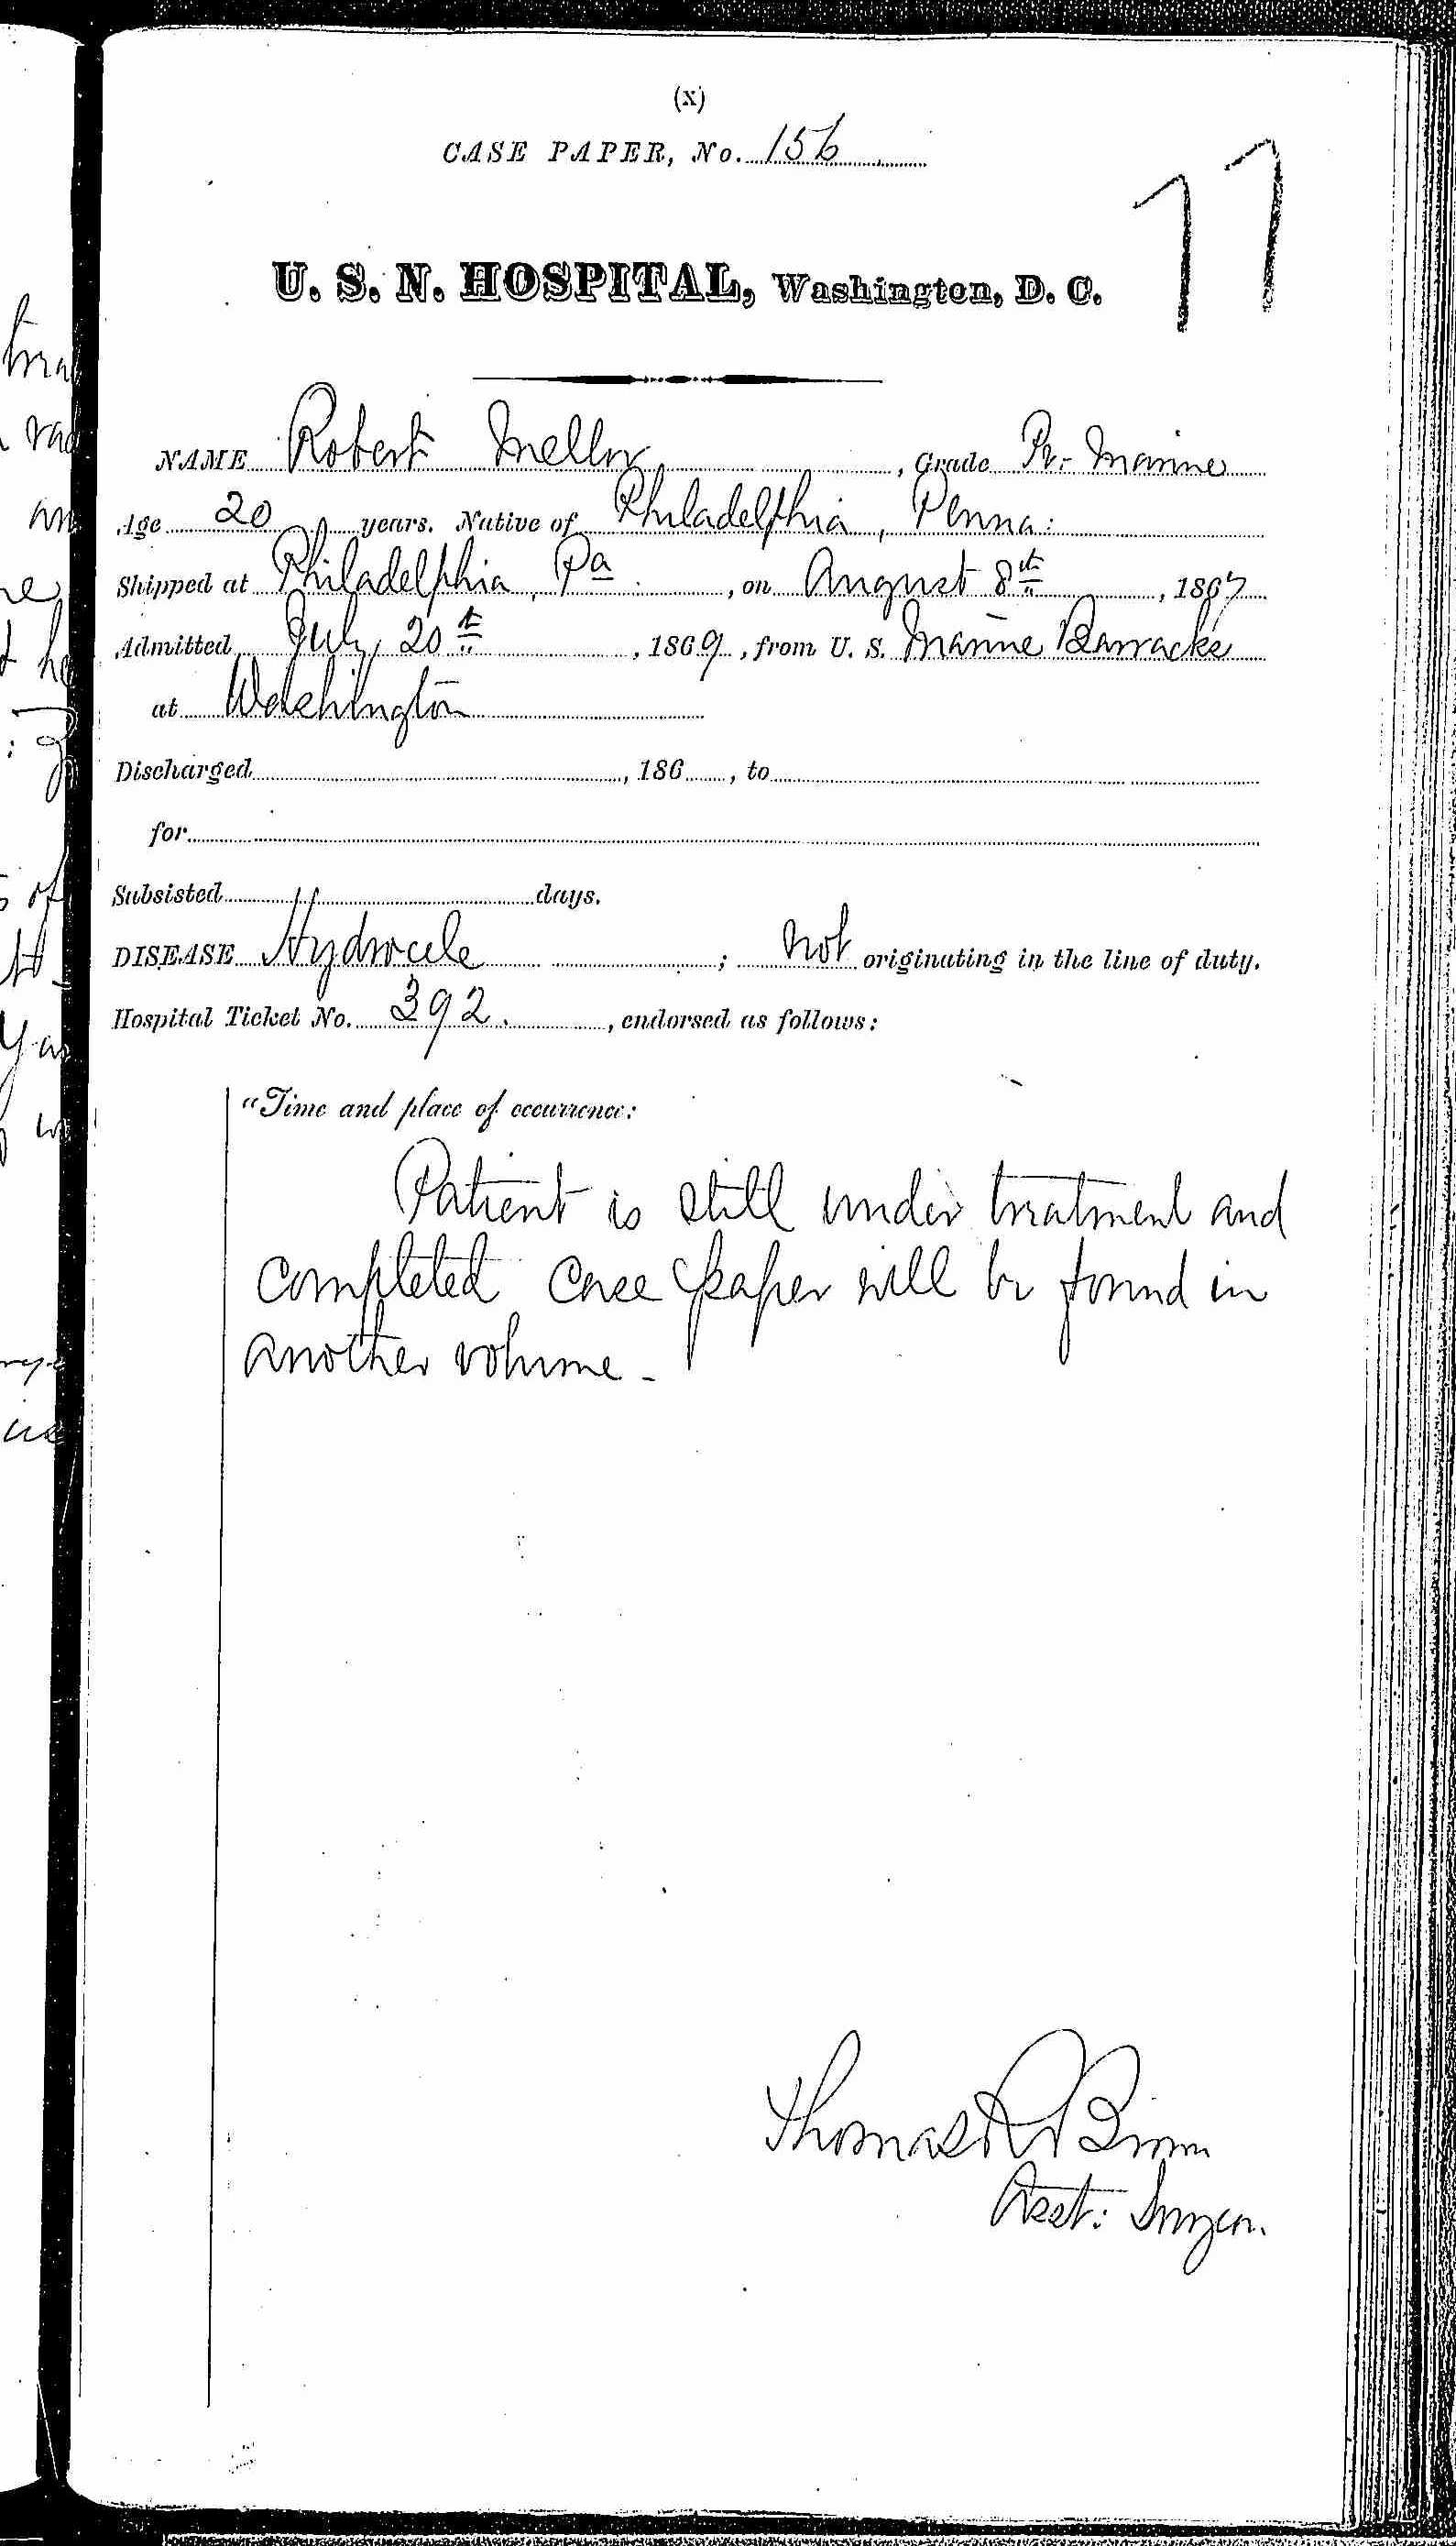 (x)
CASE PAPER, No. 156
77
U. S. N. HOSPITAL, Washington, D. C.
NAME Robert Mellor, Grade Pr. Marine
Age 20 years. Native of Philadelphia, Penna:
Shipped at Philadelphia, Pa, on August 8th, 1867
Admitted July 20th, 1869, from U. S. Marine Barracks
at Washington
Discharged, 186, to
for
Subsisted days.
DISEASE Hydrocele; not originating in the line of duty.
Hospital Ticket No. 392., endorsed as follows:
"Time and place of occurrence:
Patient is still under treatment and
completed case paper will be found in
another volume.
Thomas R
Asst: Surgeon.